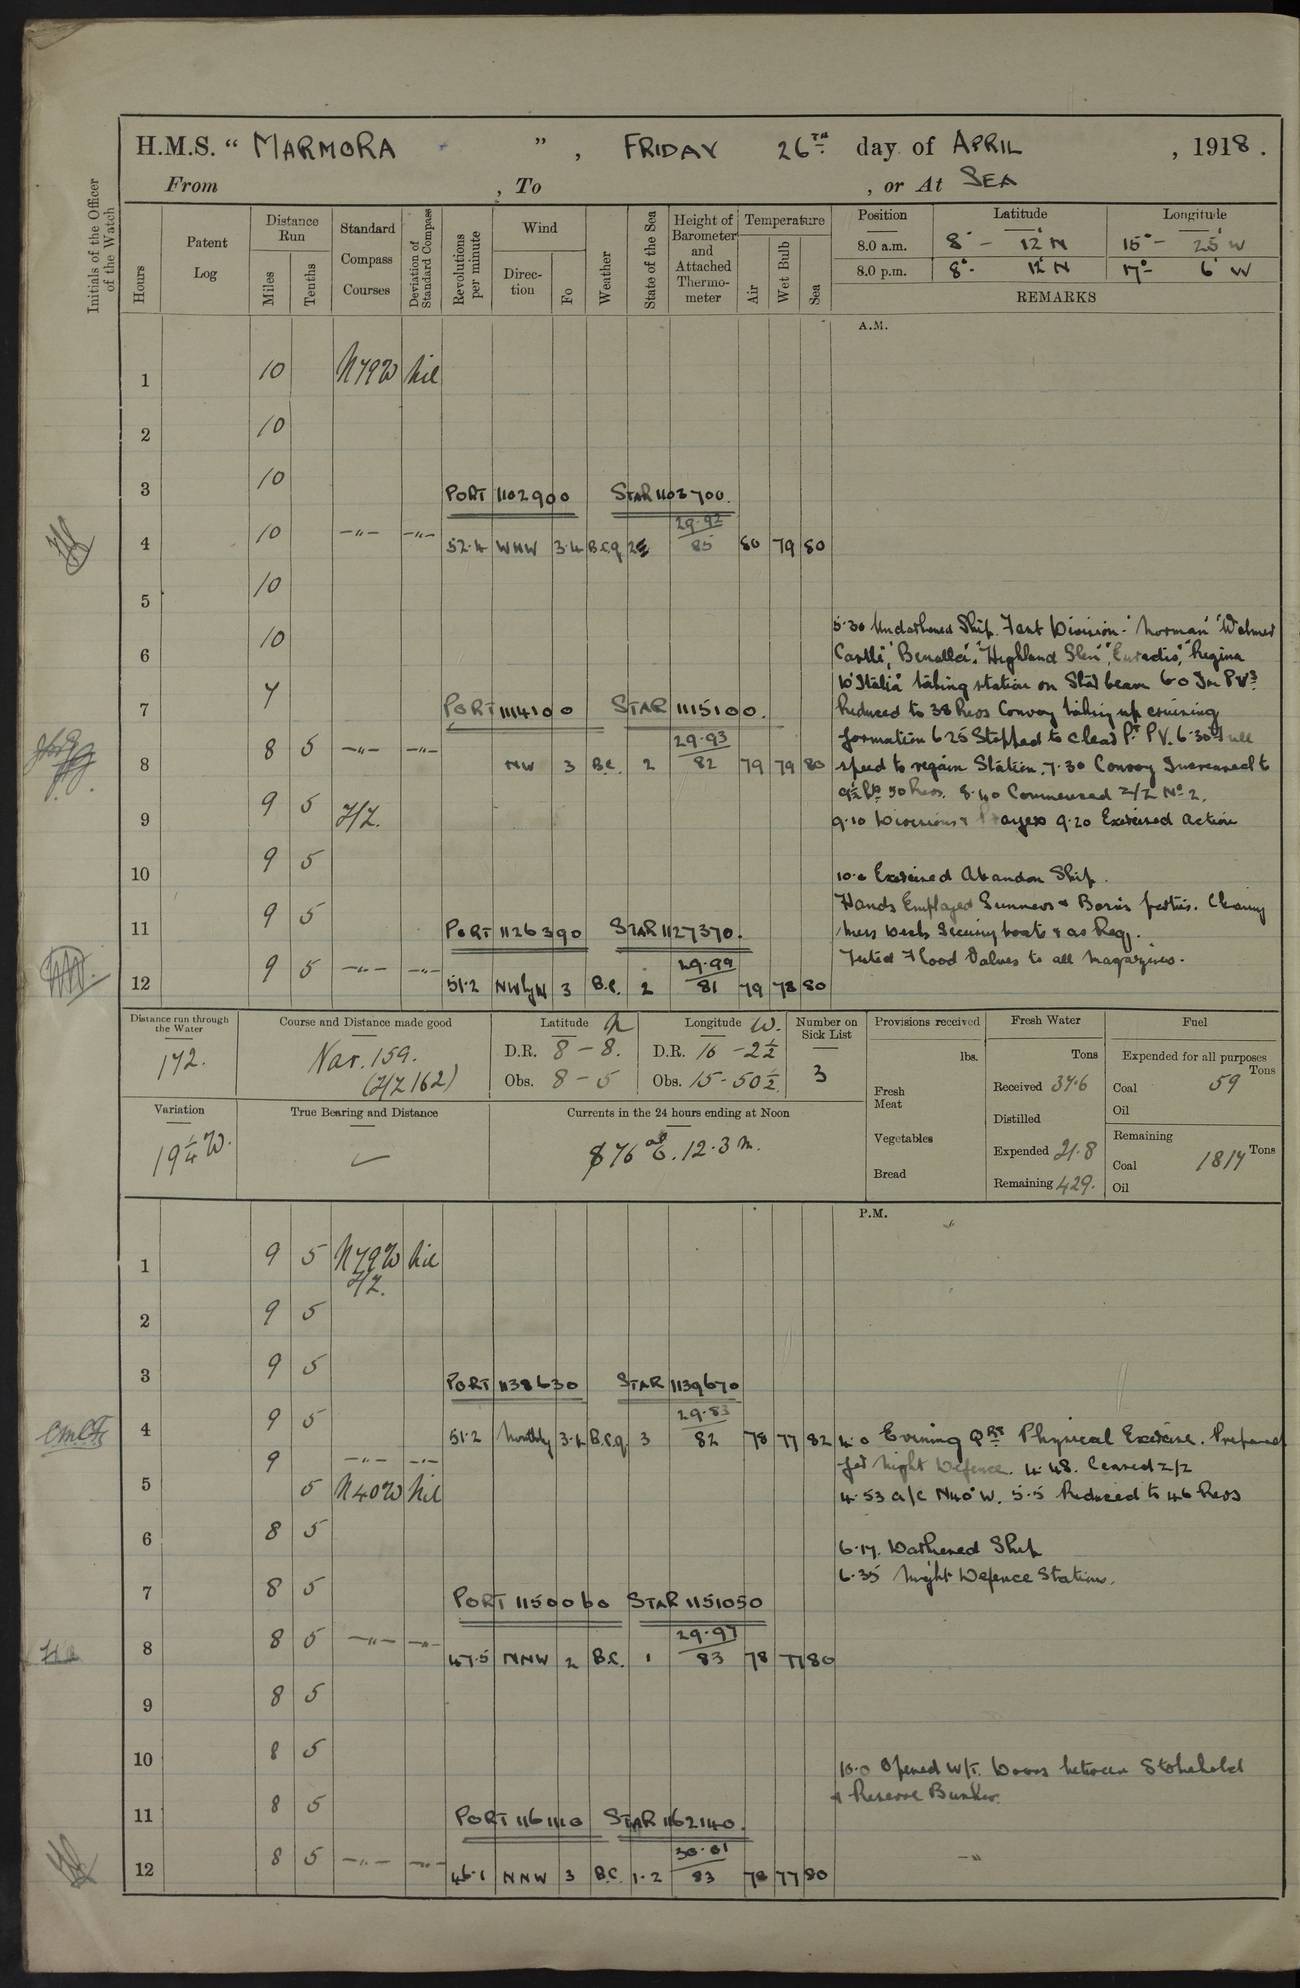 H.M.S. “ MARMORA ” , FRIDAY 26TH day of APRIL , 1918 .
From , To , or At SEA
Initials of the Officer of the Watch
Hours
Patent Log
Distance Run
Miles
Tenths
Standard Compass Courses
Deviation of Standard Compass
Revolutions per minute
Wind
Direction
Fo
Weather
State of the Sea
Height of Barometer and Attached Thermometer
Temperature
Air
Wet Bulb
Sea
Position Latitude Longitude
8.0 a.m. 8° - 12' N 15° - 25' W
8.0 p.m. 8° - 12' N 17° - 6' W
REMARKS
A.M.
1 10 N79W Nil
2 10
3 10
PORT 1102900 STAR 1103700.
4 10 -"- -"- 52.4 WNW 3.4 B.C.q 29.92 85 80 79 80
5 10
6 10
5.30 Undarkened Ship. Fast Division - 'Norman' 'Walmer
Castle', 'Benalla', 'Highland Glen', Regina
D'Italia' taking station on Stbd beam 6.0 In P.V.s
7 7
PORT 1114100 STAR 1115100.
Reduced to 38 Revs Convoy taking up cruising
formation 6.25 Stopped to clear Pt PV. 6.30 Full
8 8 5 -"- -"- NW 3 B.C. 2 29.93 82 79 79 80
speed to regain Station. 7.30 Convoy Increased to
9½ Kts 50 Revs. 8.40 Commenced Z/Z No 2.
9 9 5 Z/Z.
9.10 Divisions & Prayers 9.20 Exercised Action
10 9 5
10.0 Exercised Abandon Ship.
Hands Employed Gunners & Bosn's parties. Cleaning
11 9 5
PORT 1126390 STAR 1127370.
Mess Decks Securing boats & as Req.
Tested Flood Valves to all Magazines.
12 9 5 -"- -"- 51.2 NWbyN 3 B.C. 2 29.99 81 79 78 80
Distance run through the Water
172.
Course and Distance made good
Var. 159.
(Z/Z 162)
Latitude N
D.R. 8 - 8.
Obs. 8 - 5
Longitude W.
D.R. 16 - 2½
Obs. 15 - 50½
Number on Sick List
3
Provisions received
lbs.
Fresh Meat
Vegetables
Bread
Fresh Water
Tons
Received 37.6
Distilled
Expended 21.8
Remaining 429.
Fuel
Expended for all purposes
Tons
Coal 59
Oil
Remaining
Tons
Coal 1817
Oil
Variation
19¼ W.
True Bearing and Distance
Currents in the 24 hours ending at Noon
S 76 E. 12.3 m.
P.M.
1 9 5 N79W Nil
Z/Z.
2 9 5
3 9 5
PORT 1138630 STAR 1139670
4 9 5 51.2 3.4 B.C.q 3 29.83 82 78 77 82
4.0 Evening Qrs Physical Exercise. Prepared
9 -"- -"-
for Night Defence. 4.48. Ceased Z/Z
5 5 N40W Nil
4.53 a/c N40°W. 5.5 Reduced to 46 Revs
6 8 5
6.17. Darkened Ship
6.35 Night Defence Stations.
7 8 5
PORT 1150060 STAR 1151050
8 8 5 -"- -"- 47.5 NNW 2 B.C. 1 29.97 83 78 77 80
9 8 5
10 8 5
10.0 Opened W/T. Doors between Stokehold
& Reserve Bunker.
11 8 5
PORT 1161110 STAR 1162140.
12 8 5 -"- -"- 46.1 NNW 3 B.C. 1.2 30.01 83 78 77 80